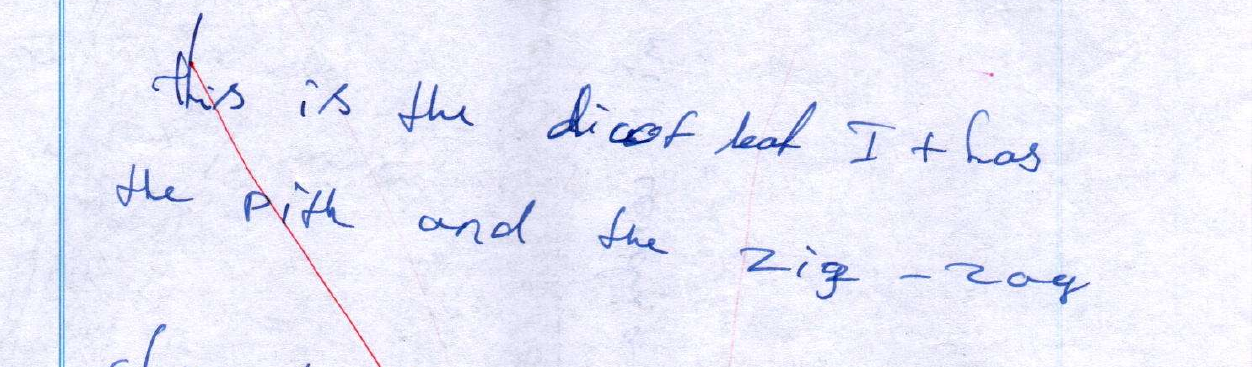 this is the dicot leaf It has
the pith and the zig-zag